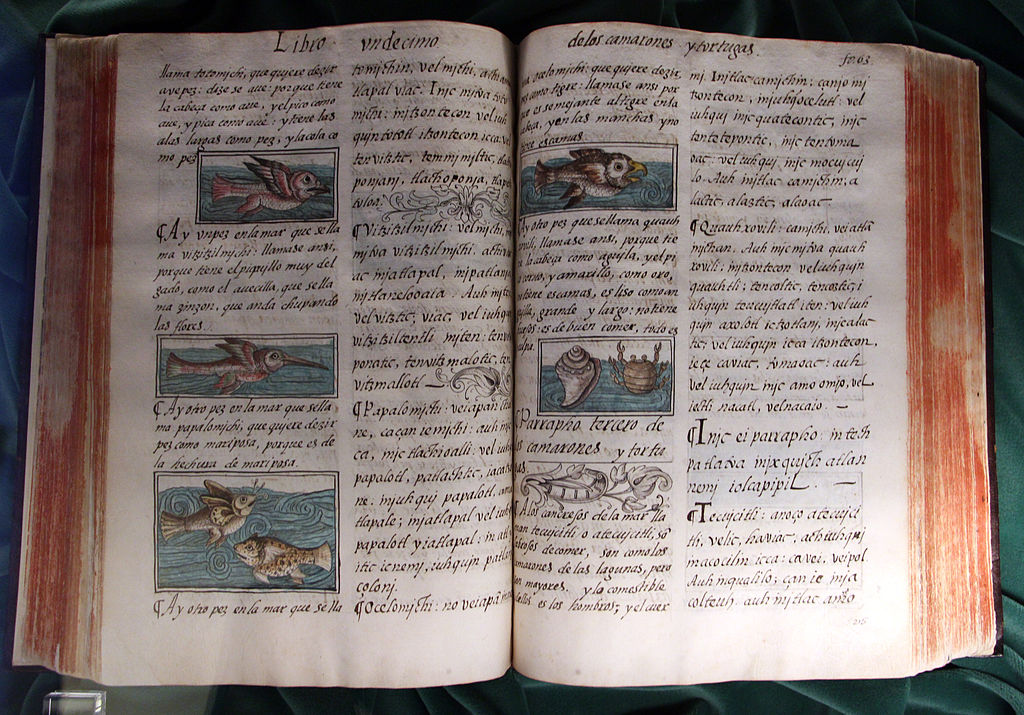 Libro vndecimo
llama totomichi, que quiere dezir
ave pez: dize se ave: porque tiene
la cabeça como ave, y el pico como
ave, y pica como ave: y tiene las
alas largas como pez, y la cola co
mo pez
¶ Ay vn pez en la mar que se lla
ma vitzitzilmichi: llamase ansi,
porque tiene el piquillo muy del
gado, como el avecilla, que se lla
ma zinzon, que anda chupando
las flores.
¶ Ay otro pez en la mar que se lla
mo papalomichi, que quiere dezir
pez como mariposa, porque es de
la hechura de mariposa.
¶ Ay otro pez en la mar que se lla
tomichin, vel michi,
tlapal viac. Injc mitva toto
michi: mitzontecon vel iuh
quin tototl itzontecon icca. vel
tenvitztic,
ponjanj, tlachoponja,
tuloa
¶ Vitzitzilmichi: vel michi,
mitva vitzitzilmichi:
ac mjatlapal, mjpatlanja
mjtlanelooaia. Auh
vel vitztic; viac, vel iuh
vitzitziltentli, miten: ten
ponatic, tenvitzmalotic, ten
vitzmallotl
¶ Papalomichi:
ne, cacan ie michi:
ca, mjc tlachioalli. vel iuh
papalotl, patlachtic,
ne. injuhquj papalotl
tlapale; injatlapal vel iuh
papalotl yiatlapal:
itic ienemj, iuhqujn
colonj.
¶ Ocelomichi: no
de los camarones y tortugas. fo. 63
ocelomichi: que quiere dezir,
como tigre: llamase ansi por
que es semejante al tigre en la
cabeça, y en las manchas y no
tiene escamas.
Ay otro pez que se llama quauh
xovili, llamase ansi, porque tie
ne la cabeça como aguila, y el pi
co corvo, y amarillo, como oro,
no tiene escamas, es liso como an
guilla, grande y largo: no tiene
huesos: es de buen comer, todo es
pulpa.
Parrapho tercero de
los camarones y tortu
gas.
A los cangrejos de la mar lla
man tecujcitli o atecujcitli, son
de comer, son como los
camarones de las lagunas, pero
son mayores. y la comestible
dellos es los hombros; y el cuer
mj. Injtlac camjchin: canjo mj
tzontecon, injuhqocelutl: vel
iuhquj injc quatecontic, injc
tentetepontic, injc tentoma
oac. vel iuhquj injc mocujcuj
lo. Auh injtlac camjchin: a
lactic, alaztic, alaoac.
¶ Quauhxovili: camjchi, vei atla
mjchan. Auh injc mitva quauh
xovili: injtzontecon vel iuhqujn
quauhtli; tencoltic,
iuhqujn teucujtlatl iten: vel iuh
qujn axolotl ic tzotlanj, injc alac
tic; vel iuhqujn icca itzontecon,
vel iuhqujn injc amo omjo, vel
iectli nacatl, vel nacaio.
¶ Injc ei parrapho: intech
patlatoa injxqujch atlan
nemj iolcapipil.
¶ Tecujcitli: anoço atecujci
tli, velic, haviac,
macocilin icca: ca vei, veipol
Auh inqualilo; çan ie injia
colteuh. auh injtlac amo